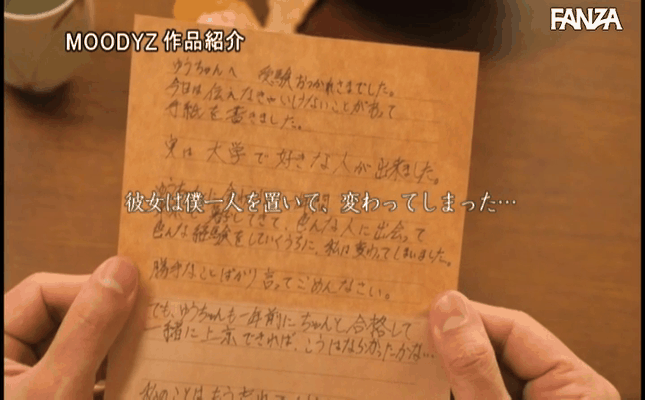 FANZA
MOODYZ 作品紹介
ゆうちゃんへ 受験おつかれさまでした。
今日は伝えなきゃいけないことがあって
手紙を書きました。
実は大学で好きな人が出来ました。
彼女は僕一人を置いて、変わってしまった…
色んな人に出会って
色んな経験をしていくうちに、私は変わってしまいました。
勝手なことばかり言ってごめんなさい。
でも、ゆうちゃんも一年前にちゃんと合格して
一緒に上京できれば、こうはならなかったかな…
私のことはもう忘れて